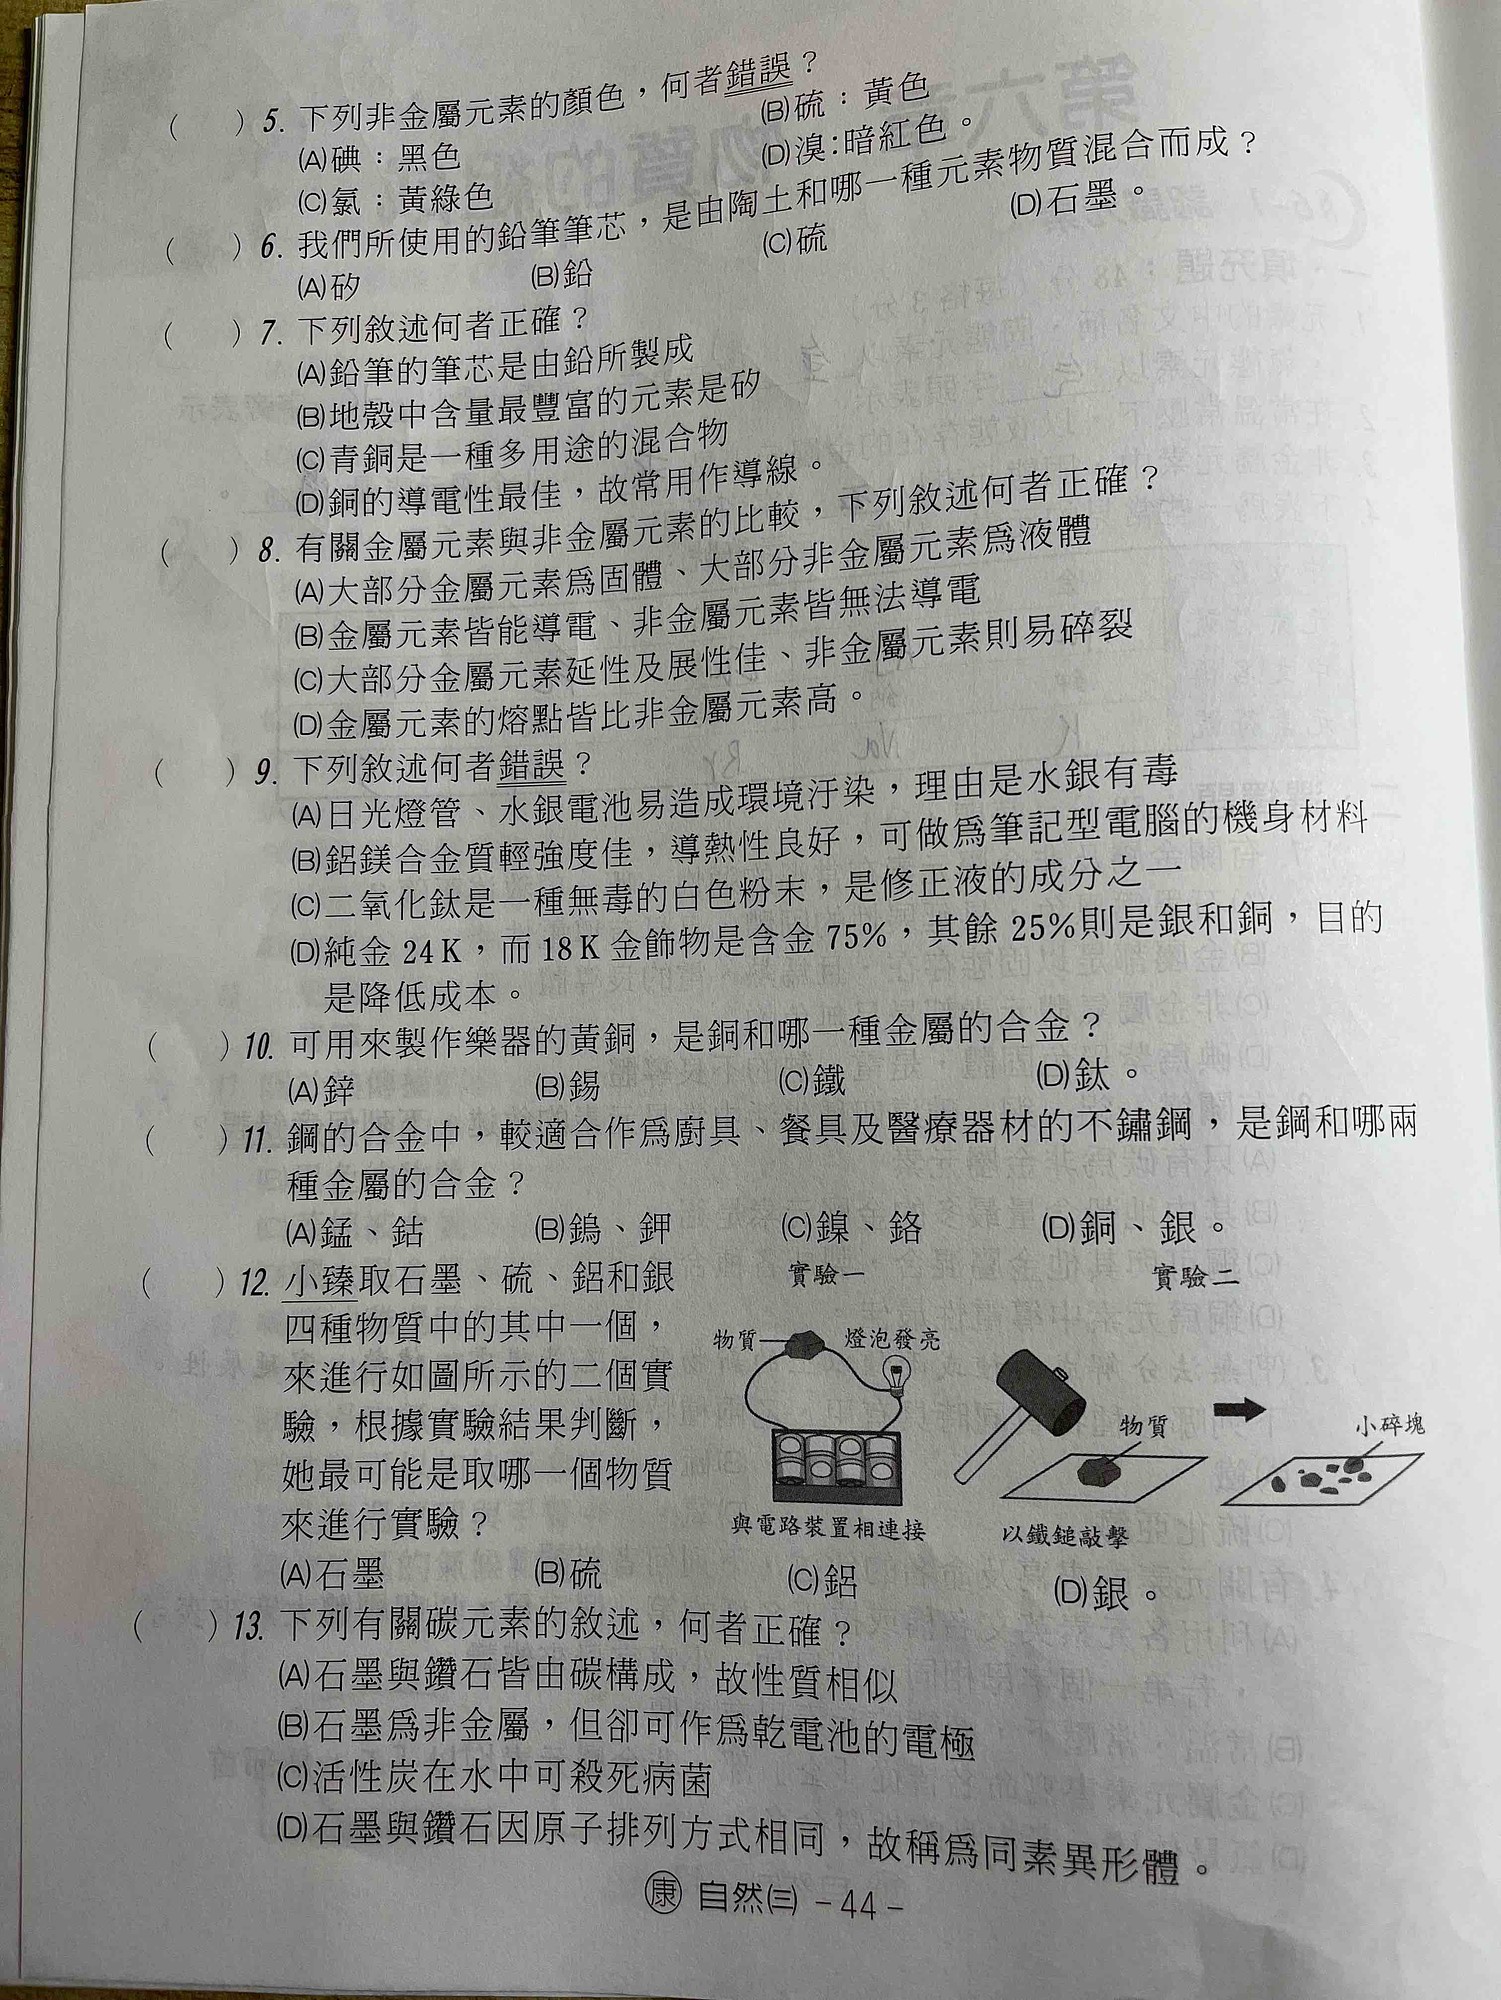 ( ) 5. 下列非金屬元素的顏色，何者錯誤？
(A)碘：黑色 (B)硫：黃色
(C)氯：黃綠色 (D)溴:暗紅色。
( ) 6. 我們所使用的鉛筆筆芯，是由陶土和哪一種元素物質混合而成？
(A)矽 (B)鉛 (C)硫 (D)石墨。
( ) 7. 下列敘述何者正確？
(A)鉛筆的筆芯是由鉛所製成
(B)地殼中含量最豐富的元素是矽
(C)青銅是一種多用途的混合物
(D)銅的導電性最佳，故常用作導線。
( ) 8. 有關金屬元素與非金屬元素的比較，下列敘述何者正確？
(A)大部分金屬元素爲固體、大部分非金屬元素爲液體
(B)金屬元素皆能導電、非金屬元素皆無法導電
(C)大部分金屬元素延性及展性佳、非金屬元素則易碎裂
(D)金屬元素的熔點皆比非金屬元素高。
( ) 9. 下列敘述何者錯誤？
(A)日光燈管、水銀電池易造成環境汙染，理由是水銀有毒
(B)鋁鎂合金質輕強度佳，導熱性良好，可做爲筆記型電腦的機身材料
(C)二氧化鈦是一種無毒的白色粉末，是修正液的成分之一
(D)純金 24 K，而 18 K 金飾物是含金 75%，其餘 25%則是銀和銅，目的
是降低成本。
( ) 10. 可用來製作樂器的黃銅，是銅和哪一種金屬的合金？
(A)鋅 (B)錫 (C)鐵 (D)鈦。
( ) 11. 鋼的合金中，較適合作爲廚具、餐具及醫療器材的不鏽鋼，是鋼和哪兩
種金屬的合金？
(A)錳、鈷 (B)鎢、鉀 (C)鎳、鉻 (D)銅、銀。
( ) 12. 小臻取石墨、硫、鋁和銀
四種物質中的其中一個，
來進行如圖所示的二個實
驗，根據實驗結果判斷，
她最可能是取哪一個物質
來進行實驗？
實驗一 實驗二
物質 燈泡發亮
物質 小碎塊
與電路裝置相連接 以鐵鎚敲擊
(A)石墨 (B)硫 (C)鋁 (D)銀。
( ) 13. 下列有關碳元素的敘述，何者正確？
(A)石墨與鑽石皆由碳構成，故性質相似
(B)石墨爲非金屬，但卻可作爲乾電池的電極
(C)活性炭在水中可殺死病菌
(D)石墨與鑽石因原子排列方式相同，故稱爲同素異形體。
康 自然(三) -44-